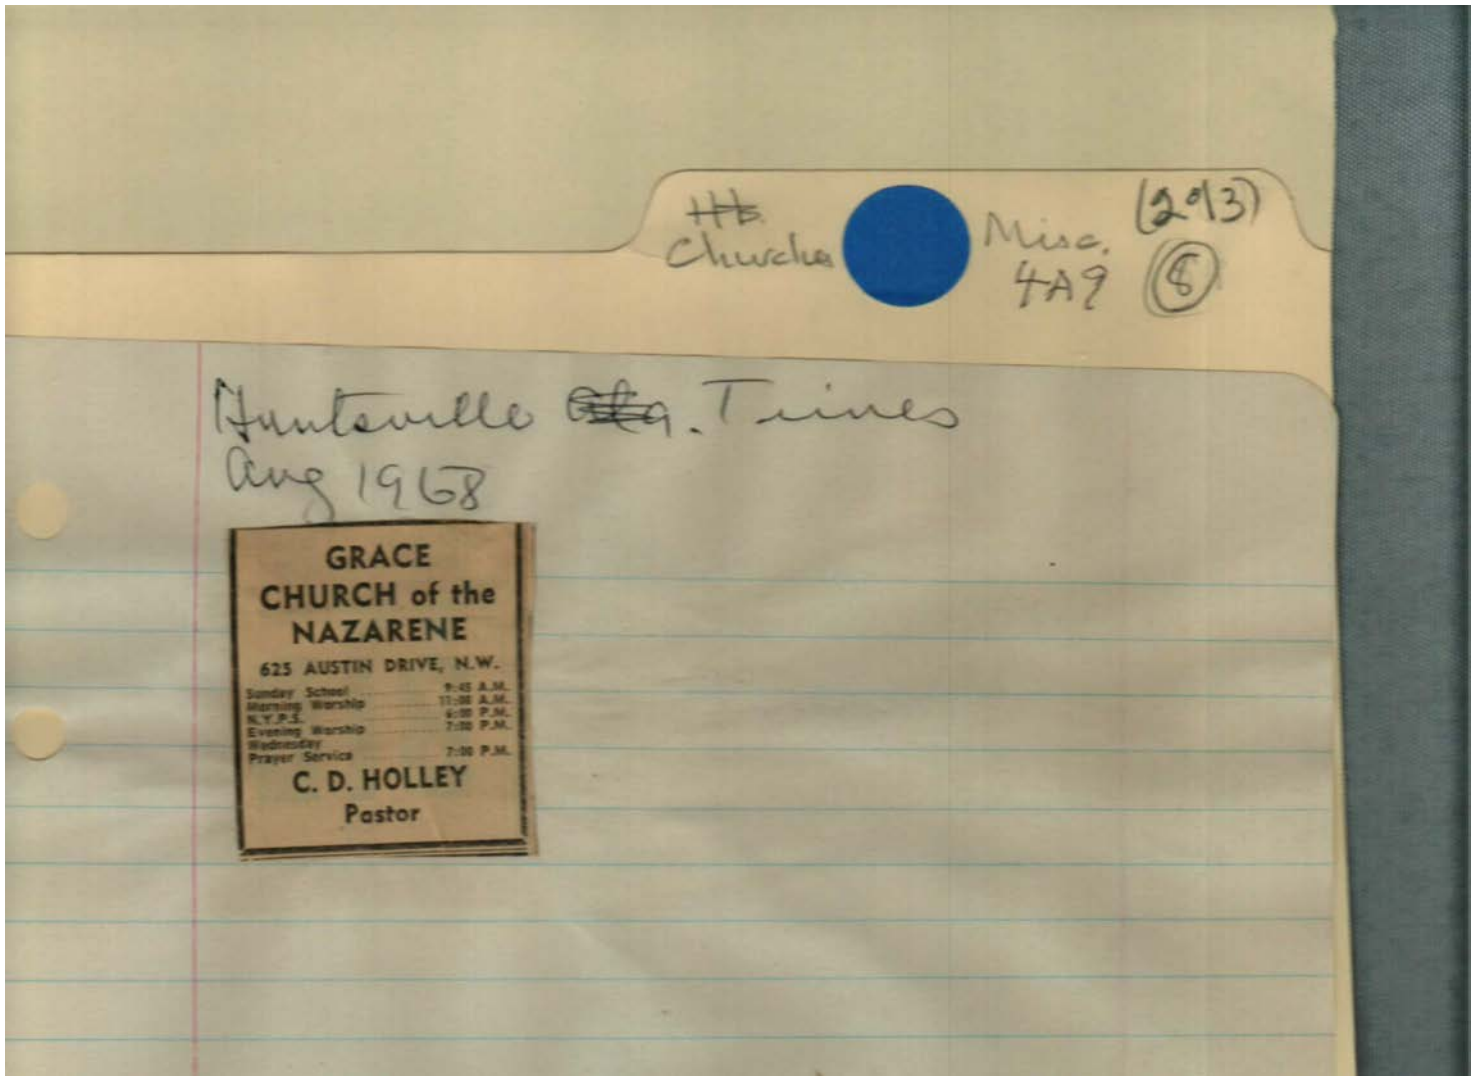 (2 of 3)
Hts. Misc.
Churches 4A9 8
Huntsville Ala. Times
Aug 1968
GRACE
CHURCH of the
NAZARENE
625 AUSTIN DRIVE, N.W.
Sunday School 9:45 A.M.
Morning Worship 11:00 A.M.
N.Y.P.S. 6:00 P.M.
Evening Worship 7:00 P.M.
Wednesday
Prayer Service 7:00 P.M.
C. D. HOLLEY
Pastor